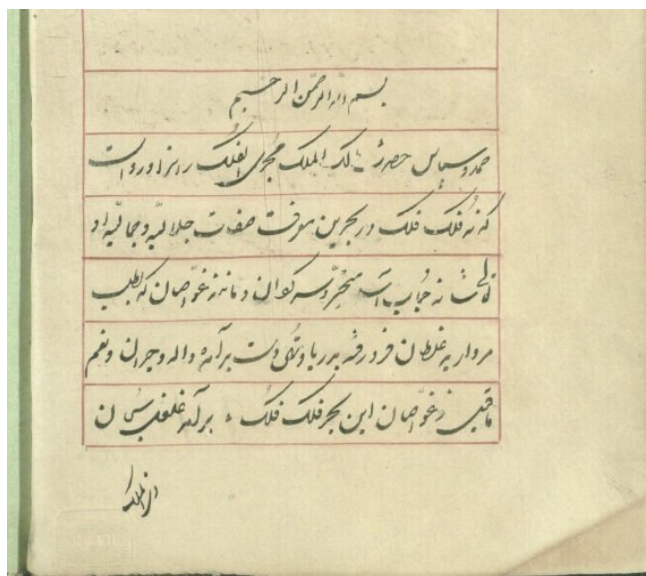 بسم الله الرحمن الرحیم
حمد و سپاس حضرت مالک الملک مجری الفلک را سزاوار است
که نه فلک فلک در بحرین معرفت صفات جلالیه و جمالیه او
حباب متحیر و سرگردان و مانند غواصان که بطلب
مروارید غلطان فرو رفته بدریا و تهی دست برآمده واله و حیران و نعم
ما قیل ز غواصان این بحر فلک فلک برآمد غلغل